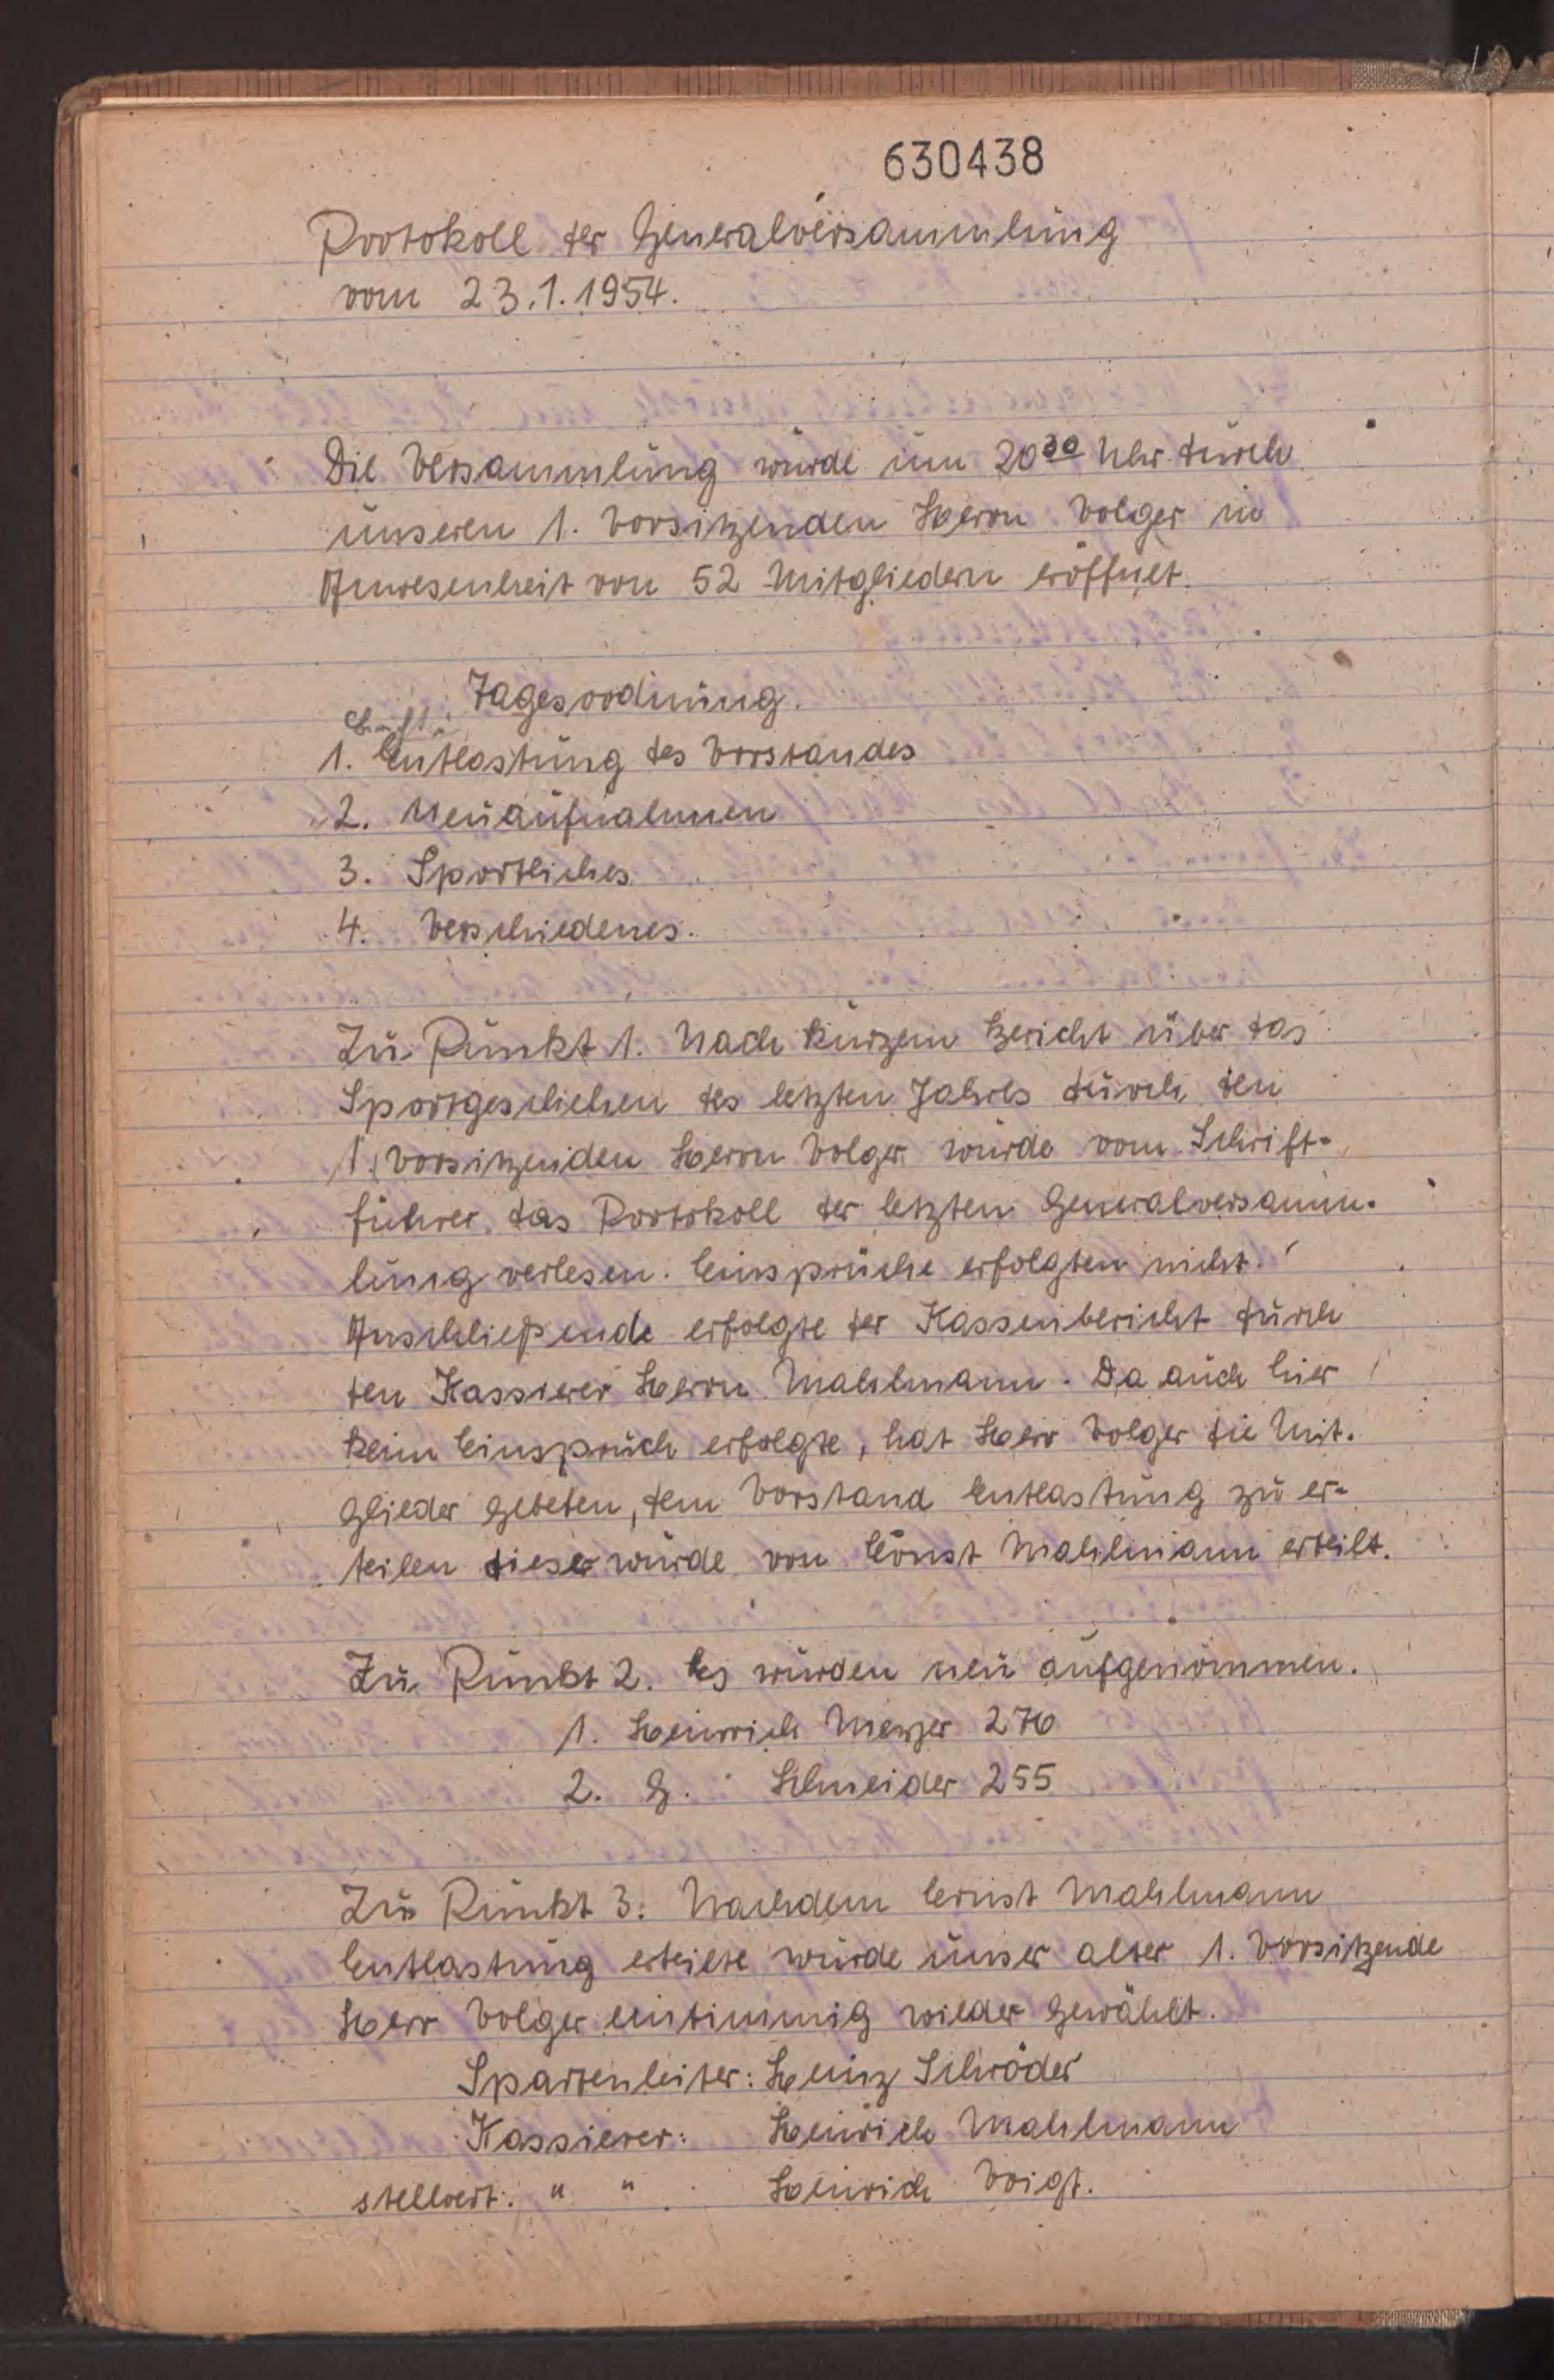 630438
Protokoll der Generalversammlung
vom 23.1.1954.
Die Versammlung wurde um 20³⁰ Uhr durch
unseren 1. Vorsitzenden Herrn Volger in
Anwesenheit von 52 Mitgliedern eröffnet.
Tagesordnung.
1. Entlastung des Vorstandes
2. Neuaufnahmen
3. Sportliches
4. Verschiedenes.
Zu Punkt 1. Nach kurzem Bericht über das
Sportgeschehen des letzten Jahres durch den
1. Vorsitzenden Herrn Volger wurde vom Schrift-
führer das Protokoll der letzten Generalversamm-
lung verlesen. Einsprüche erfolgten nicht.
Anschließende erfolgte der Kassenbericht durch
den Kassierer Herrn Mahlmann. Da auch hier
kein Einspruch erfolgte, hat Herr Volger die Mit-
glieder gebeten, dem Vorstand Entlastung zu er-
teilen diese wurde von Ernst Mahlmann erteilt.
Zu Punkt 2. Es wurden neu aufgenommen.
1. Heinrich 276
2. G. Schneider 255
Zu Punkt 3. Nachdem Ernst Mahlmann
Entlastung erteilte wurde unser alter 1. Vorsitzende
Herr Volger einstimmig wieder gewählt.
Spartenleiter: Heinz Schröder
Kassierer: Heinrich Mahlmann
stellvert. " " Heinrich Voigt.